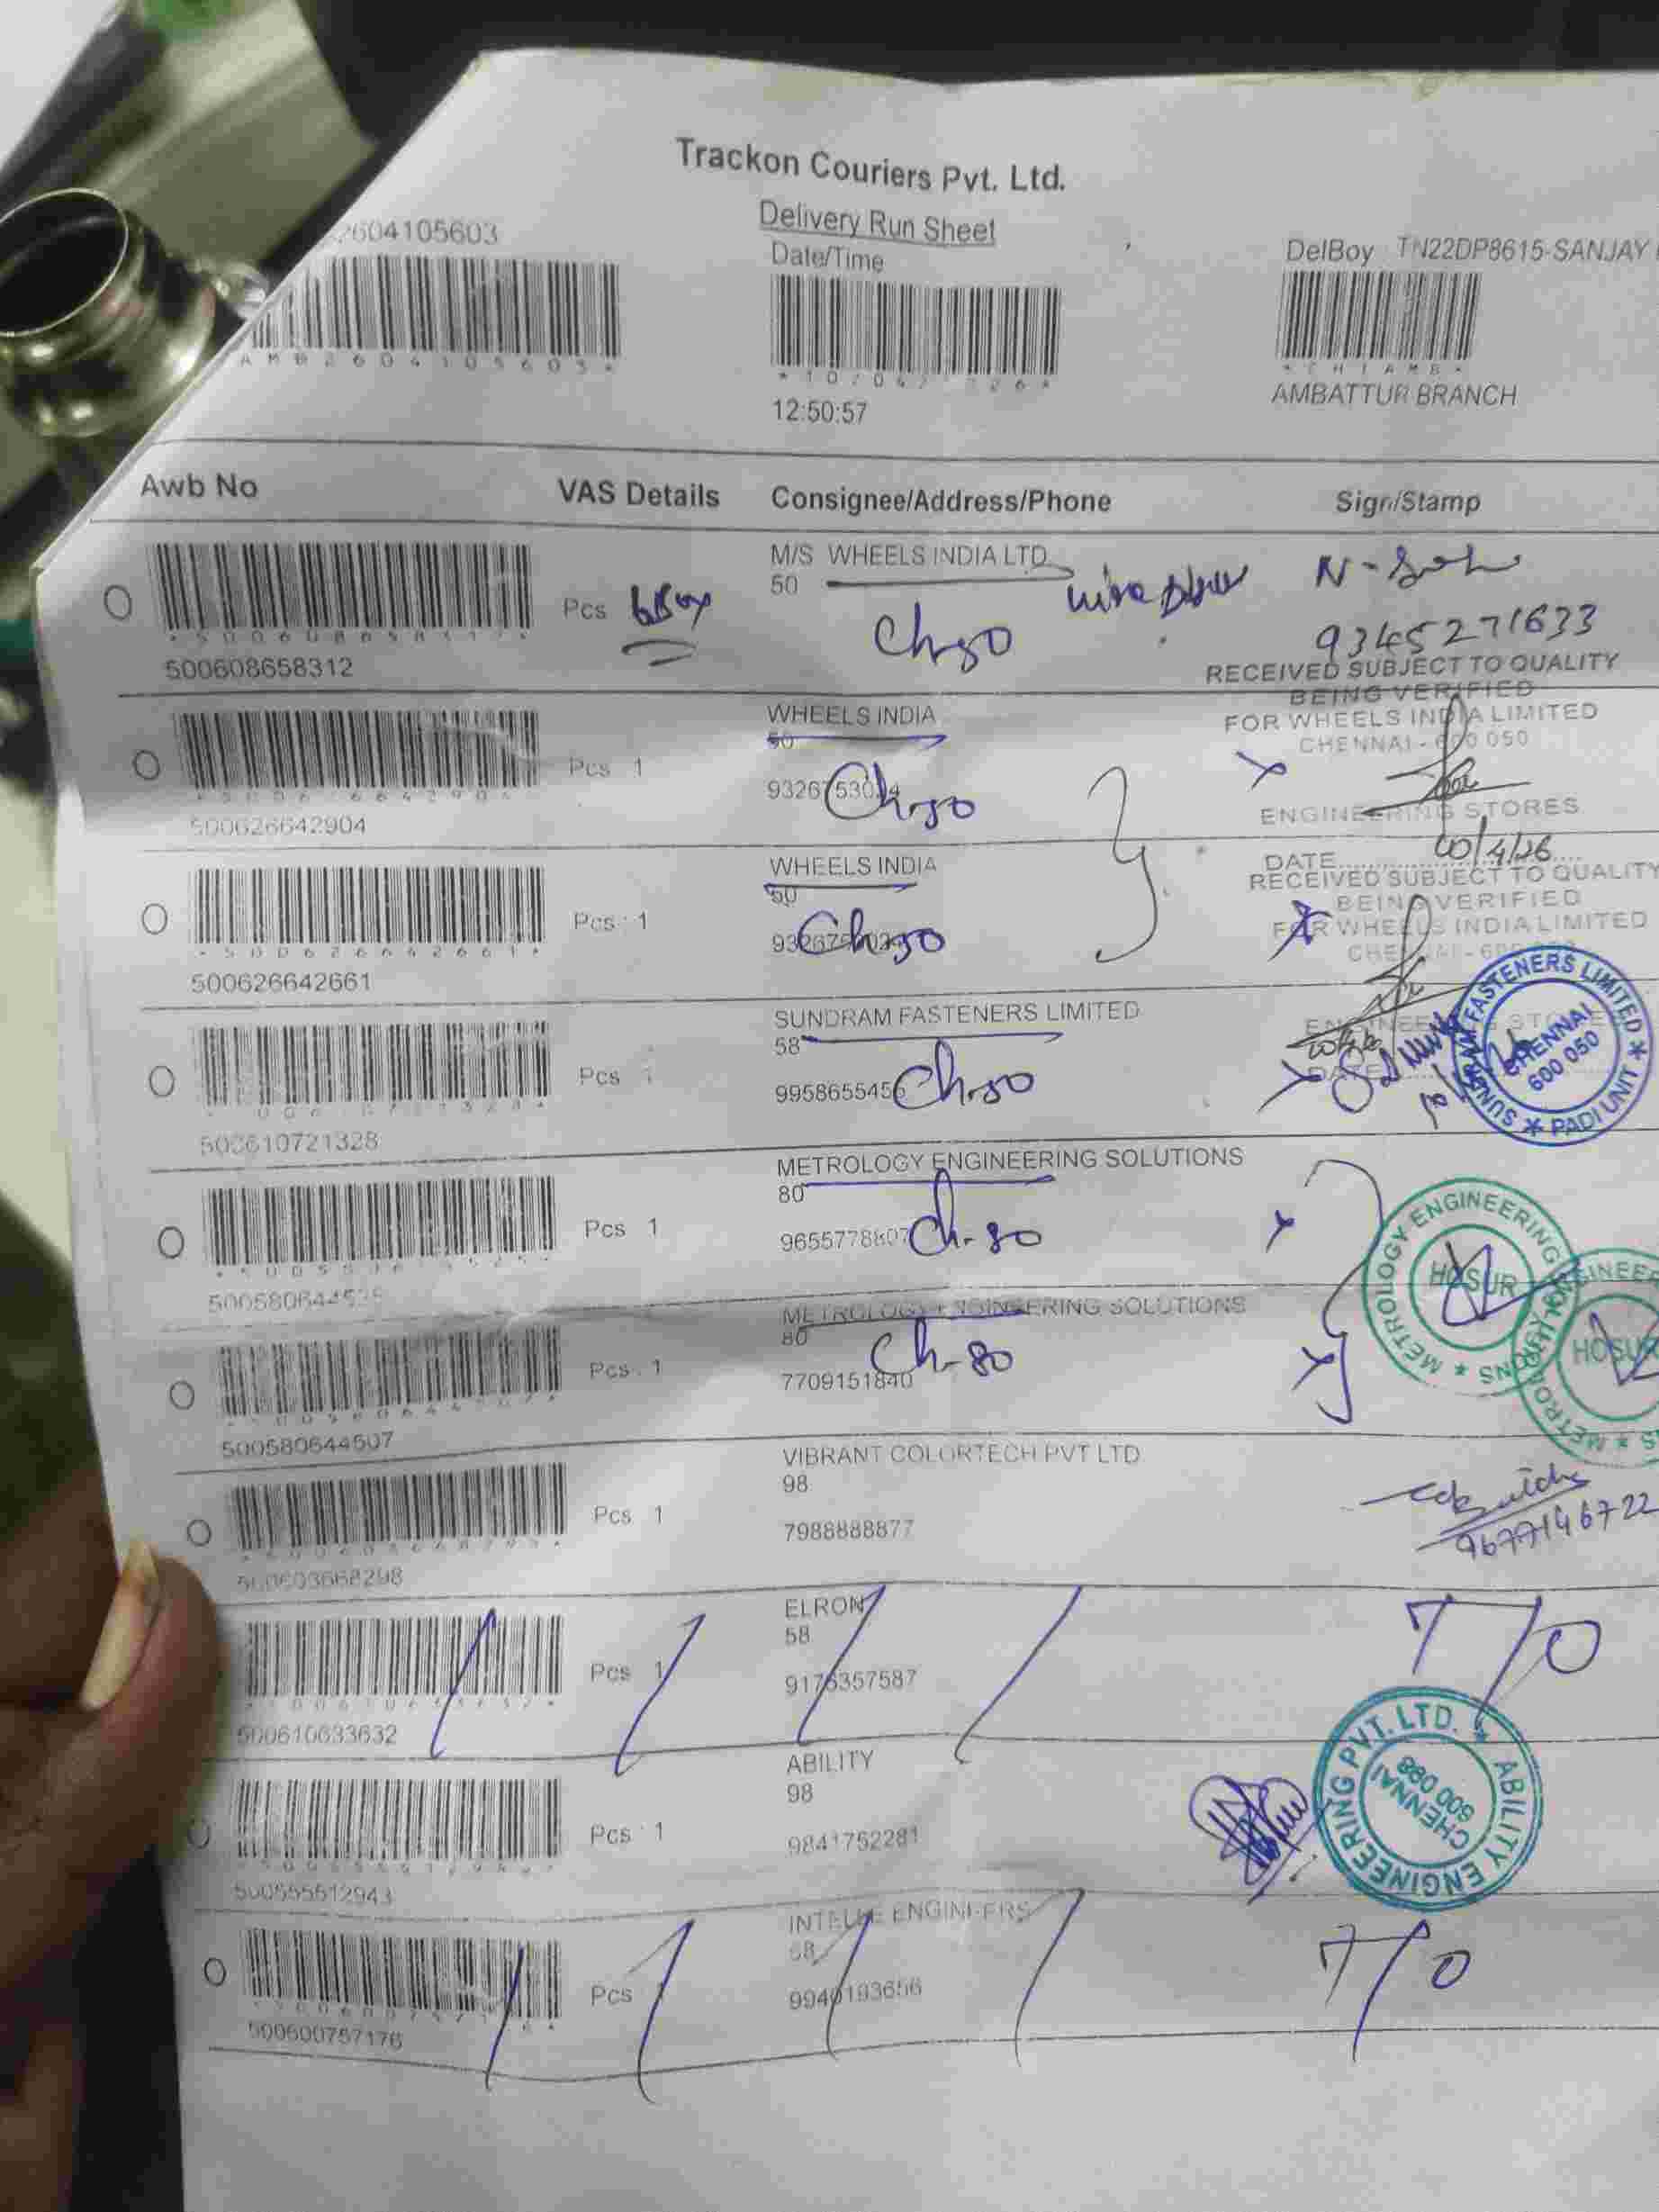 Trackon Couriers Pvt. Ltd.
Delivery Run Sheet
2604105603
Date/Time
DelBoy TN22DP8615-SANJAY
AMB2604105603*
12:50:57
AMBATTUR BRANCH
Awb No VAS Details Consignee/Address/Phone Sign/Stamp
M/S WHEELS INDIA LTD
50
Pcs
Ch-50
9345271633
500608658312
RECEIVED SUBJECT TO QUALITY
BEING VERIFIED
FOR WHEELS INDIA LIMITED
CHENNAI - 600 050
ENGINEERING STORES
DATE 10/4/26
WHEELS INDIA
50
Pcs 1
Ch-50
500626642904
WHEELS INDIA
50
Pcs 1
Ch-50
500626642661
RECEIVED SUBJECT TO QUALITY
BEING VERIFIED
FOR WHEELS INDIA LIMITED
SUNDRAM FASTENERS LIMITED
58
Pcs
9958655456
Ch-50
500610721328
SUNDRAM FASTENERS LIMITED * PADI UNIT *
CHENNAI
600 050
METROLOGY ENGINEERING SOLUTIONS
80
Pcs 1
9655778807
Ch-80
METROLOGY ENGINEERING SOLUTIONS *
HOSUR
METROLOGY ENGINEERING SOLUTIONS
80
Pcs 1
7709151840
Ch-80
500580644507
HOSUR
VIBRANT COLORTECH PVT LTD
98
Pcs 1
7988888877
9677146722
500603668298
ELRON
58
Pcs 1
9176357587
7/0
500610633632
ABILITY
98
Pcs 1
9841752281
500555512943
ABILITY ENGINEERING PVT. LTD. *
CHENNAI
600 098
ENGINEERS
58
Pcs
9940193656
7/0
500600757176